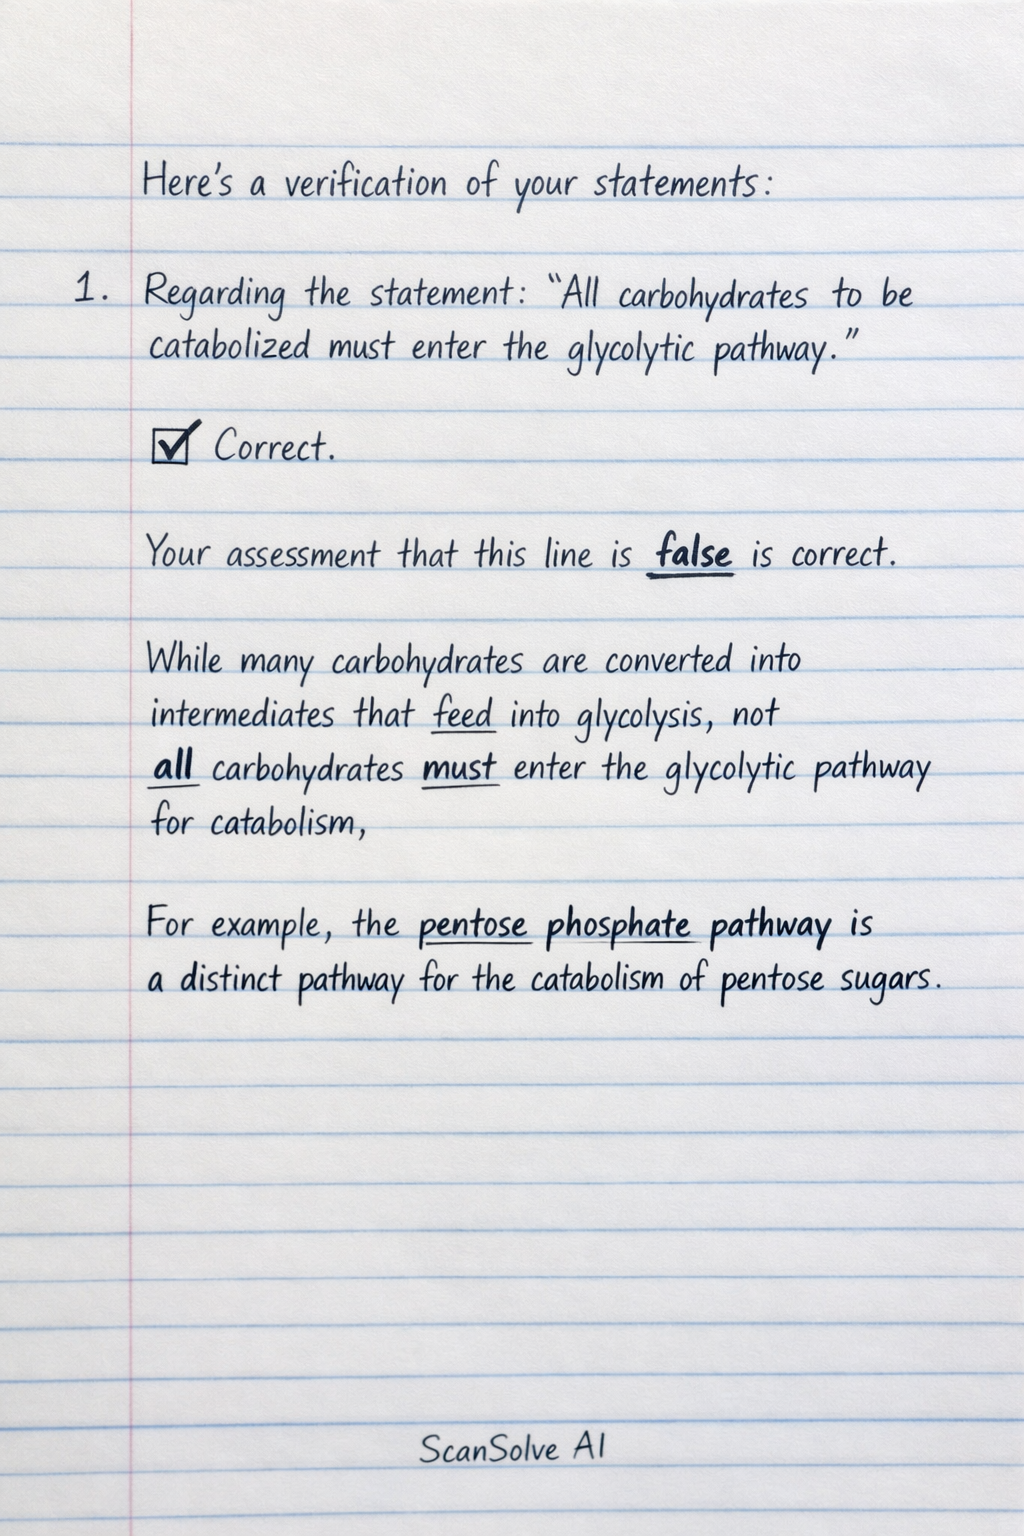 Here's a verification of your statements:
1. Regarding the statement: "All carbohydrates to be
catabolized must enter the glycolytic pathway."
☑ Correct.
Your assessment that this line is false is correct.
While many carbohydrates are converted into
intermediates that feed into glycolysis, not
all carbohydrates must enter the glycolytic pathway
for catabolism,
For example, the pentose phosphate pathway is
a distinct pathway for the catabolism of pentose sugars.
ScanSolve AI